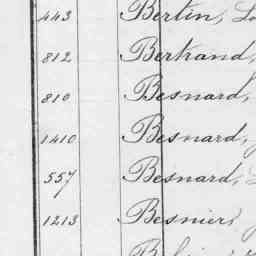 443 Bertin,
812 Bertrand,
810 Besnard,
1410 Besnard,
557 Besnard,
1213 Besnier,